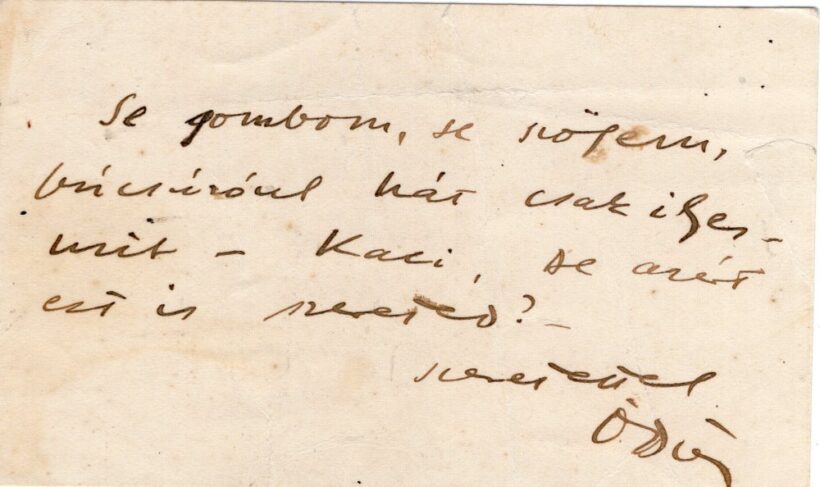 Se gombom, se szögem,
búcsúzóul hát csak ilyes-
mit – Kaci, de azért
ezt is szereted? –
szeretettel